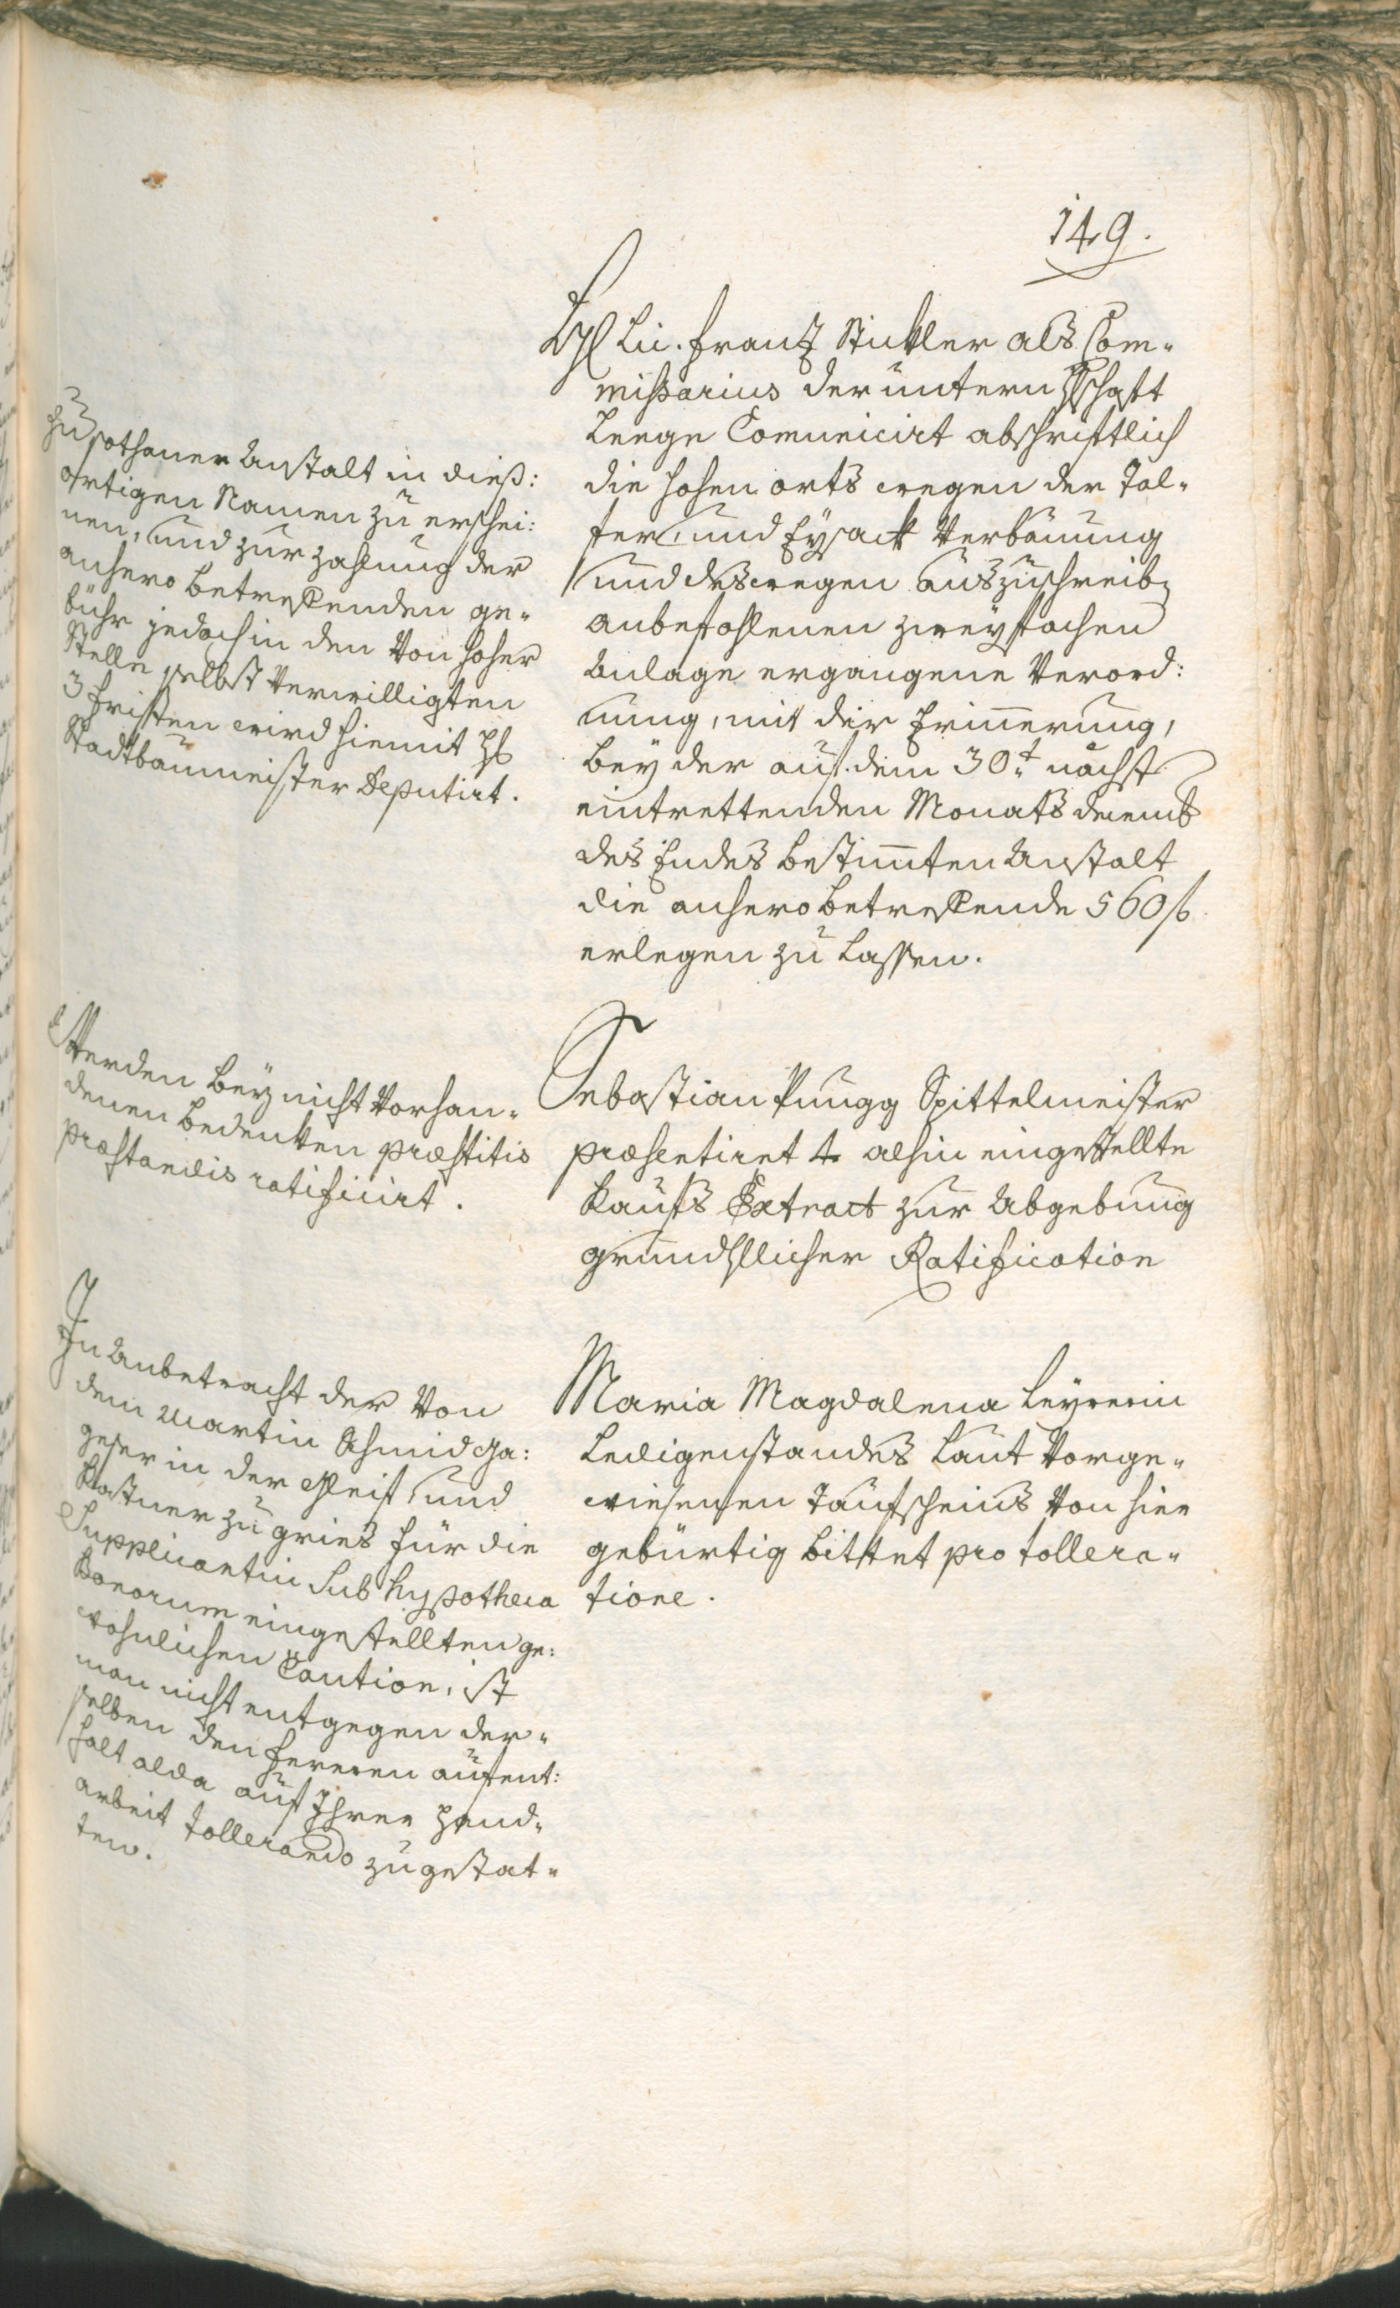 149.
H: Lic. Franz Stickler als Com¬
missarius der untern Hschafft
Leege Comunicirt abschrifftlich
die hohen orts wegen der Tal¬
fer, und Eysack Verbauung
und deswegen auszuschreib
anbefohlenen zweyfachen
Anlage ergangene Verord:
nung, mit der Erinnerung,
bey der auf dem 30.t nächst
eintrettenden Monats decemb
des Endes bestimten Anstalt
die anhero betreffende 560 f
erlegen zu lassen.
Zu sothaner Anstalt in dieß:
ortigen Namen zu erschei:
nen, und zur zahlung der
anhero betreffenden ge¬
bühr jedoch in den von hoher
Stelle selbst verwilligten
3 Fristen wird hiemit H:
Stadtbaumeister Deputirt.
Sebastian Pungg Spittelmeister
præsentiret 4 alhin eingestellte
Kaufs Extract zur Abgebung
grundhllicher Ratification
Werden bey nicht vorhan¬
denen bedenken præstitis
præstandis ratificirt.
Maria Magdalena Leyrerin
Ledigenstandes laut vorge¬
wiesenen taufscheins von hier
gebürtig bittet pro tollera¬
tione.
In Anbetracht der von
dem Martin Schmid Ga:
geser in der Pleif, und
Kastner zu gries für die
Supplicantin sub hypotheca
bonorum eingestellten ge:
wohnlichen Caution, ist
man nicht entgegen der¬
selben den ferneren aufent:
halt alda auf Ihrer Hand¬
arbeit tollerando zu gestat¬
ten.